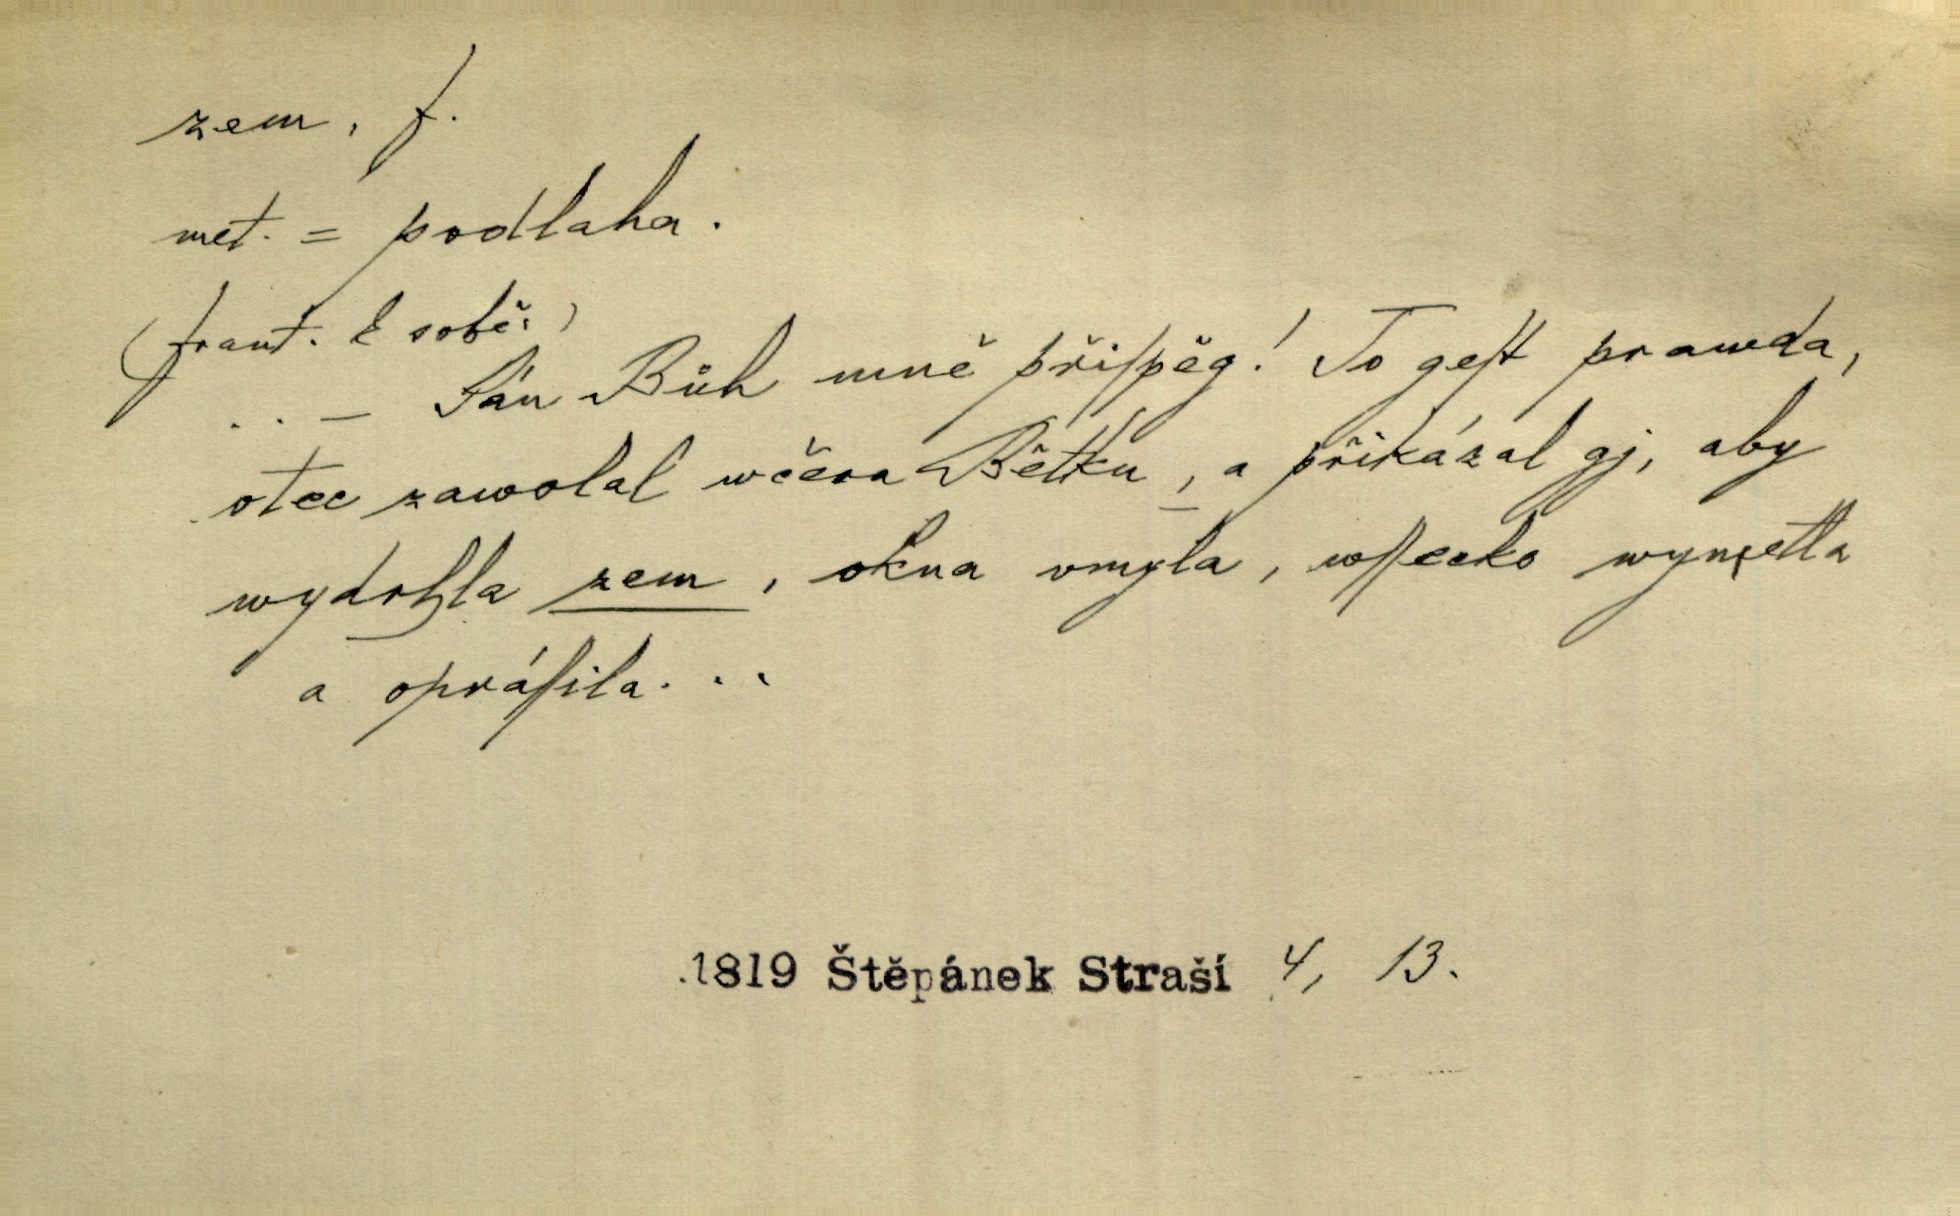 zem, f.
met. = podlaha.
(Frant. k sobě:)
.. — Pán Bůh mně přiſpěg! To geſt prawda,
otec zawolal wčera Bětku, a přikázal gj, aby
wydrhla zem, okna vmyla, wſſecko wymetla
a opráſſila...
1819 Štěpánek Straší 4, 13.